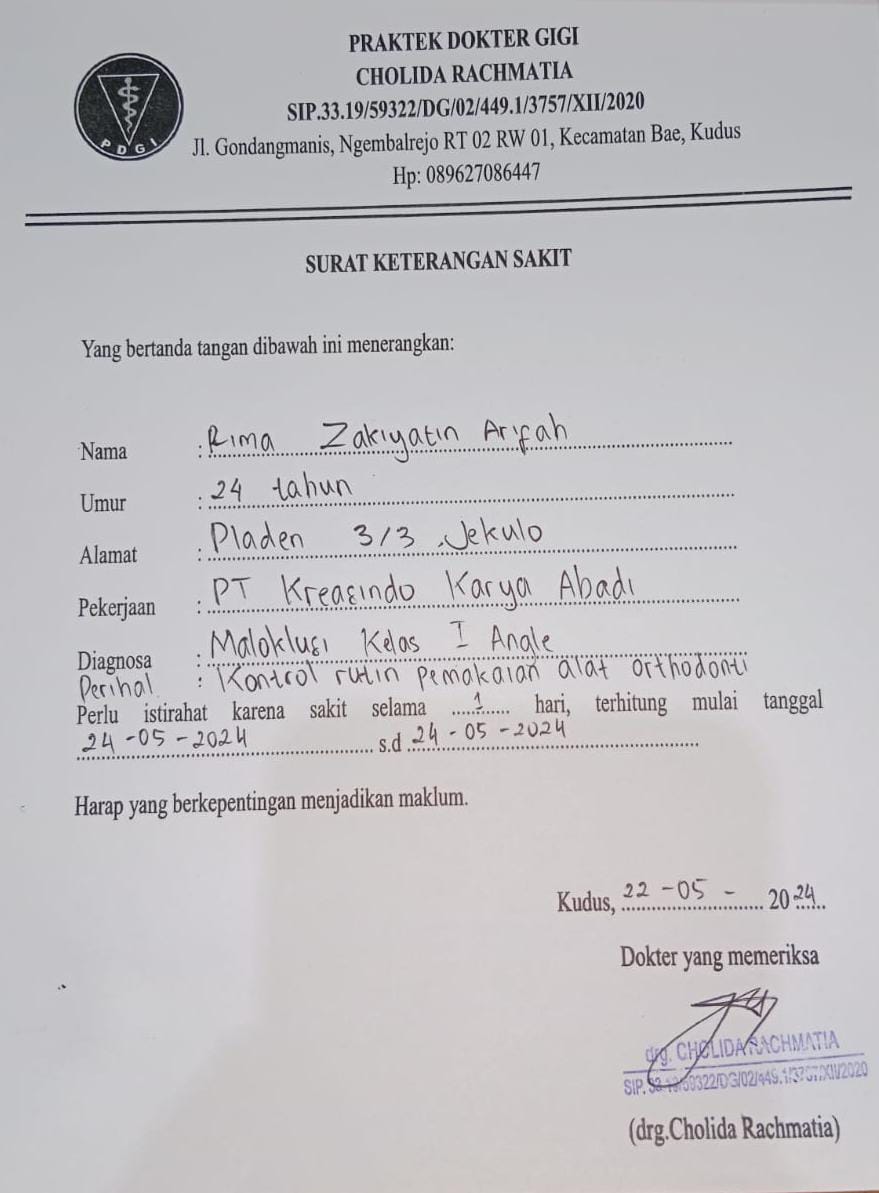 PRAKTEK DOKTER GIGI
CHOLIDA RACHMATIA
SIP.33.19/59322/DG/02/449.1/3757/XII/2020
Jl. Gondangmanis, Ngembalrejo RT 02 RW 01, Kecamatan Bae, Kudus
Hp: 089627086447
PDGI
SURAT KETERANGAN SAKIT
Yang bertanda tangan dibawah ini menerangkan:
Nama : Rima Zakiyatin Arifah
Umur : 24 tahun
Alamat : Pladen 3/3 Jekulo
Pekerjaan : PT Kreasindo Karya Abadi
Diagnosa : Maloklusi Kelas I Angle
Perihal : Kontrol rutin pemakaian alat orthodonti
Perlu istirahat karena sakit selama ...1... hari, terhitung mulai tanggal
24-05-2024 s.d 24-05-2024
Harap yang berkepentingan menjadikan maklum.
Kudus, 22-05- 2024
Dokter yang memeriksa
drg. CHOLIDA RACHMATIA
SIP.33.19/59322/DG/02/449.1/3757/XII/2020
(drg.Cholida Rachmatia)